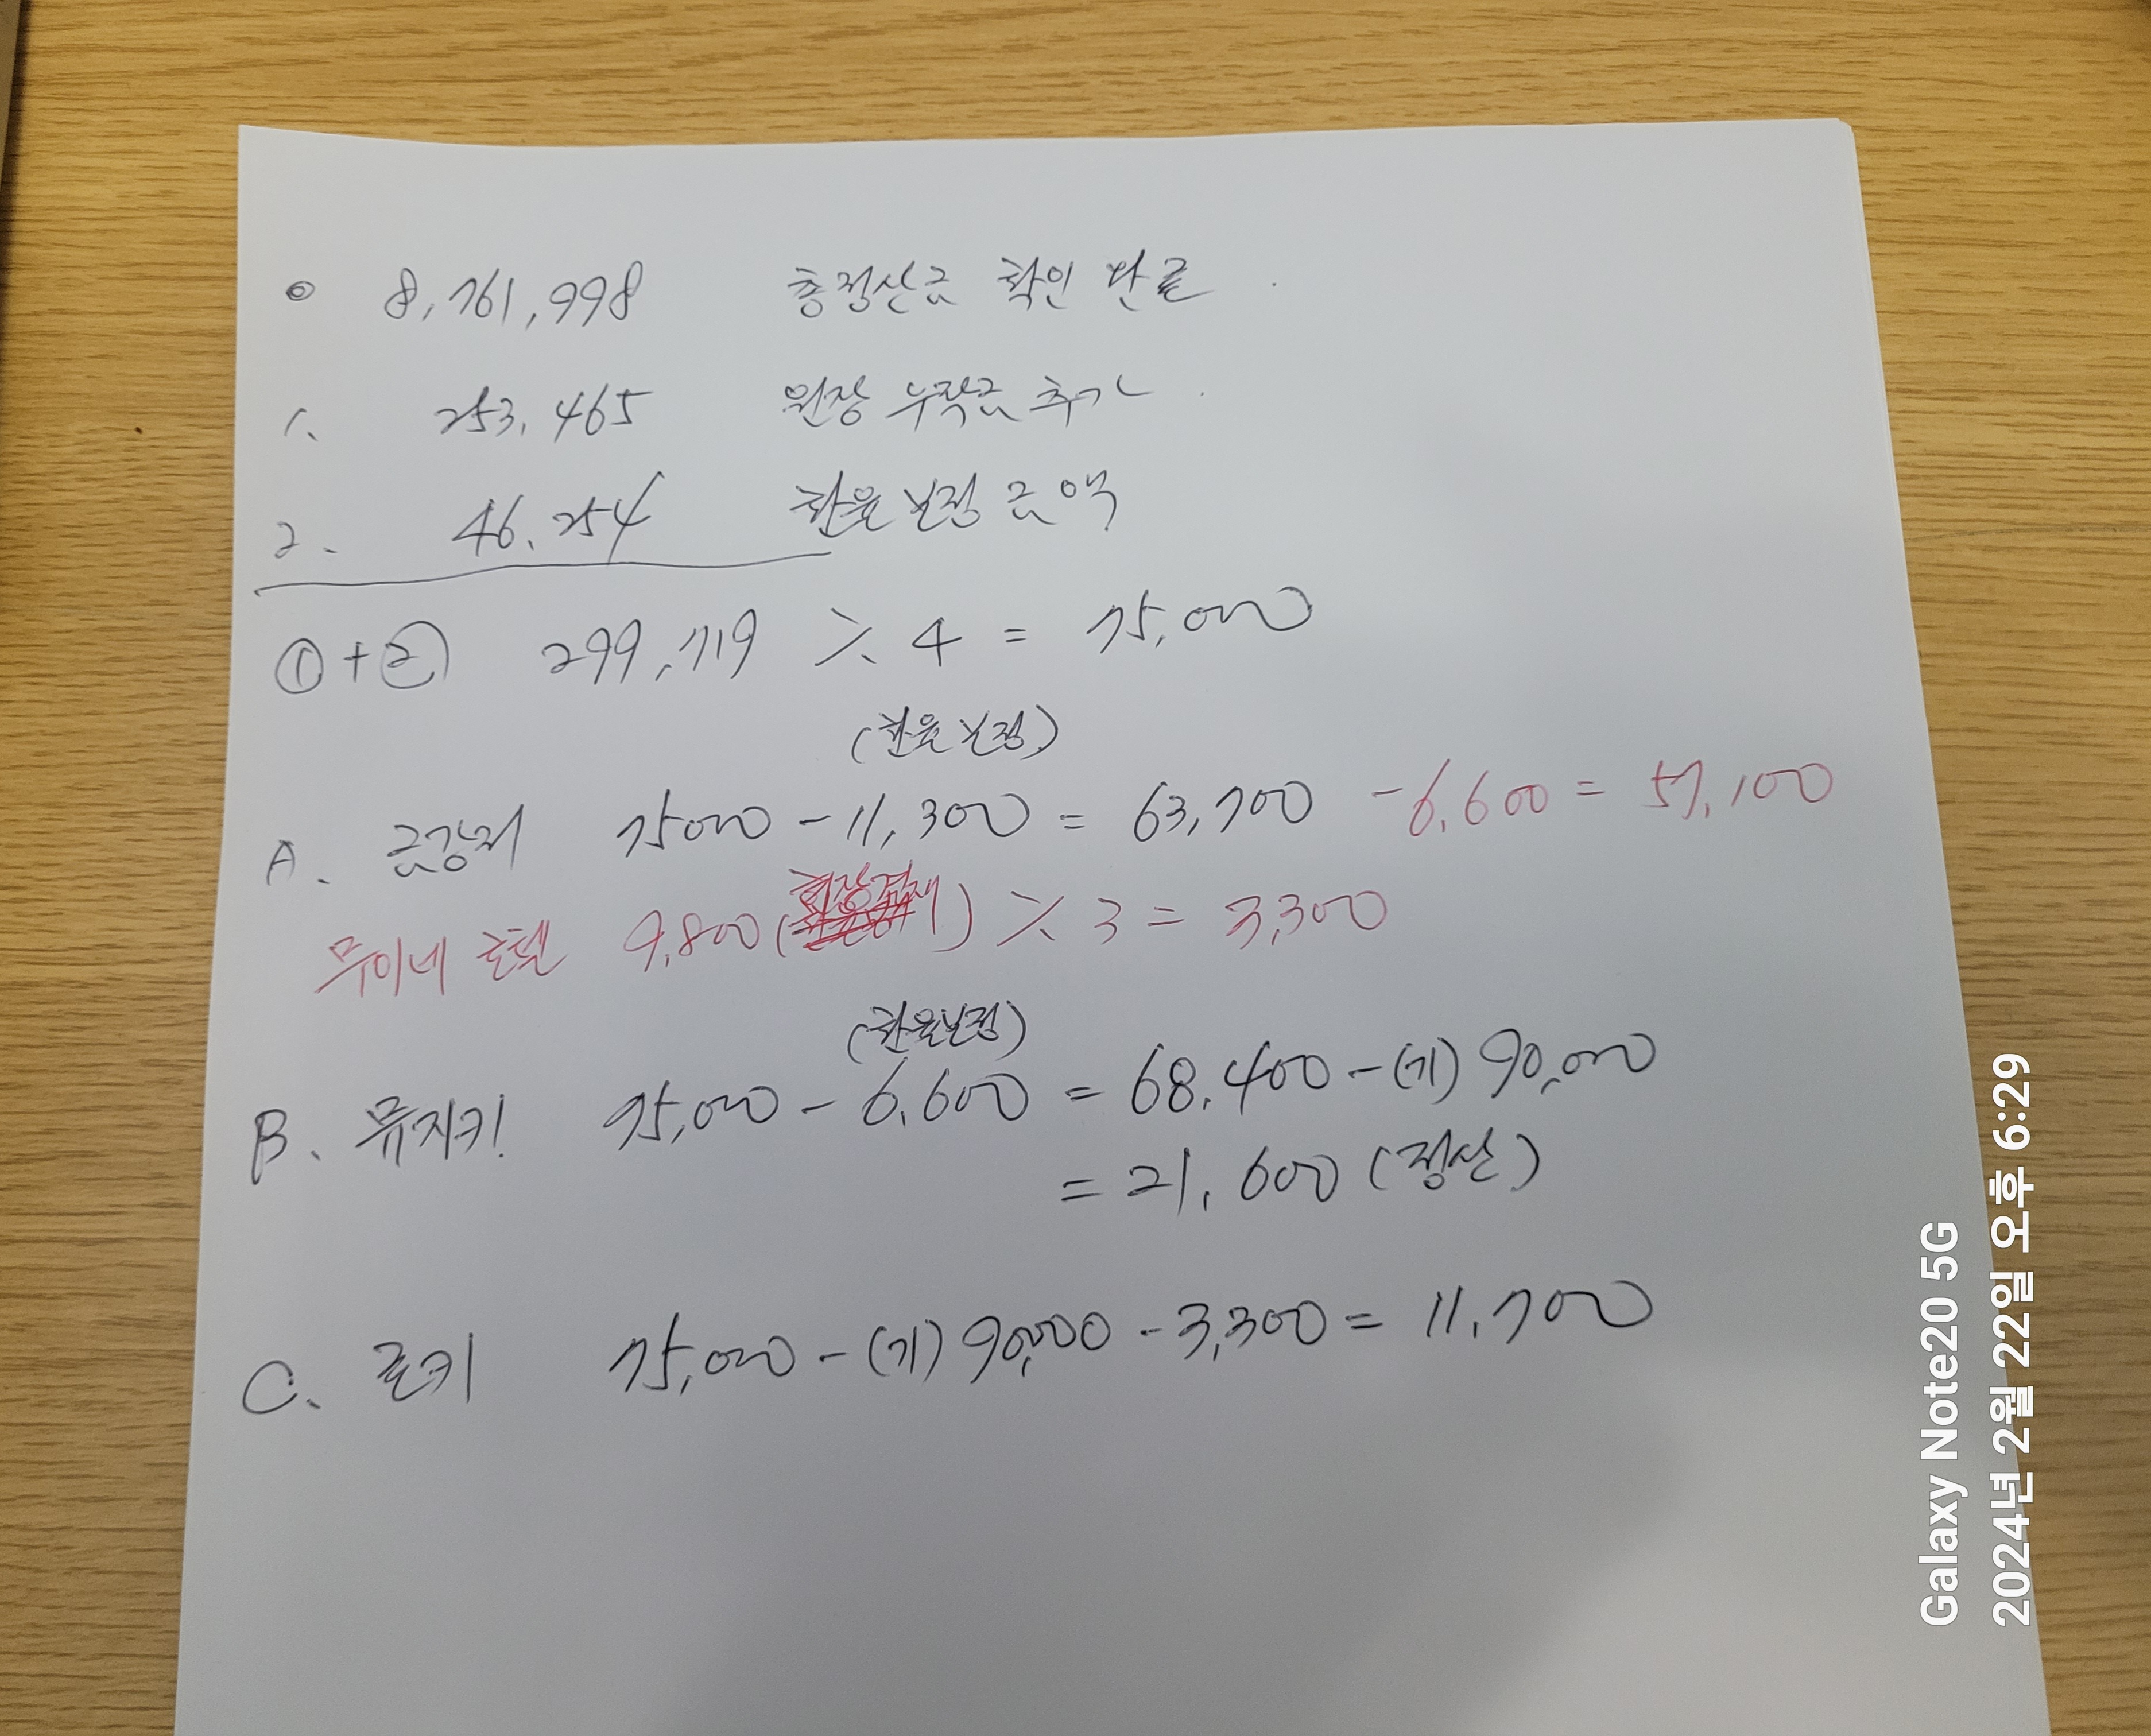 ◎ 8,761,998 총정산금 확인 완료.
1. 253,465 원장 부족금 추가.
2. 46,254 환율보정 금액
①+② 299,719 ÷ 4 = 75,000
(환율보정)
A. 금강저 75000 - 11,300 = 63,700 - 6,600 = 57,100
무이네 호텔 9,800 ( ) ÷ 3 = 3,300
(환율보정)
B. 뮤지키 75,000 - 6,600 = 68,400 - (기) 90,000
= 21,600 (정산)
C. 로키 75,000 - (기) 90,000 - 3,300 = 11,700
Galaxy Note20 5G
2024년 2월 22일 오후 6:29